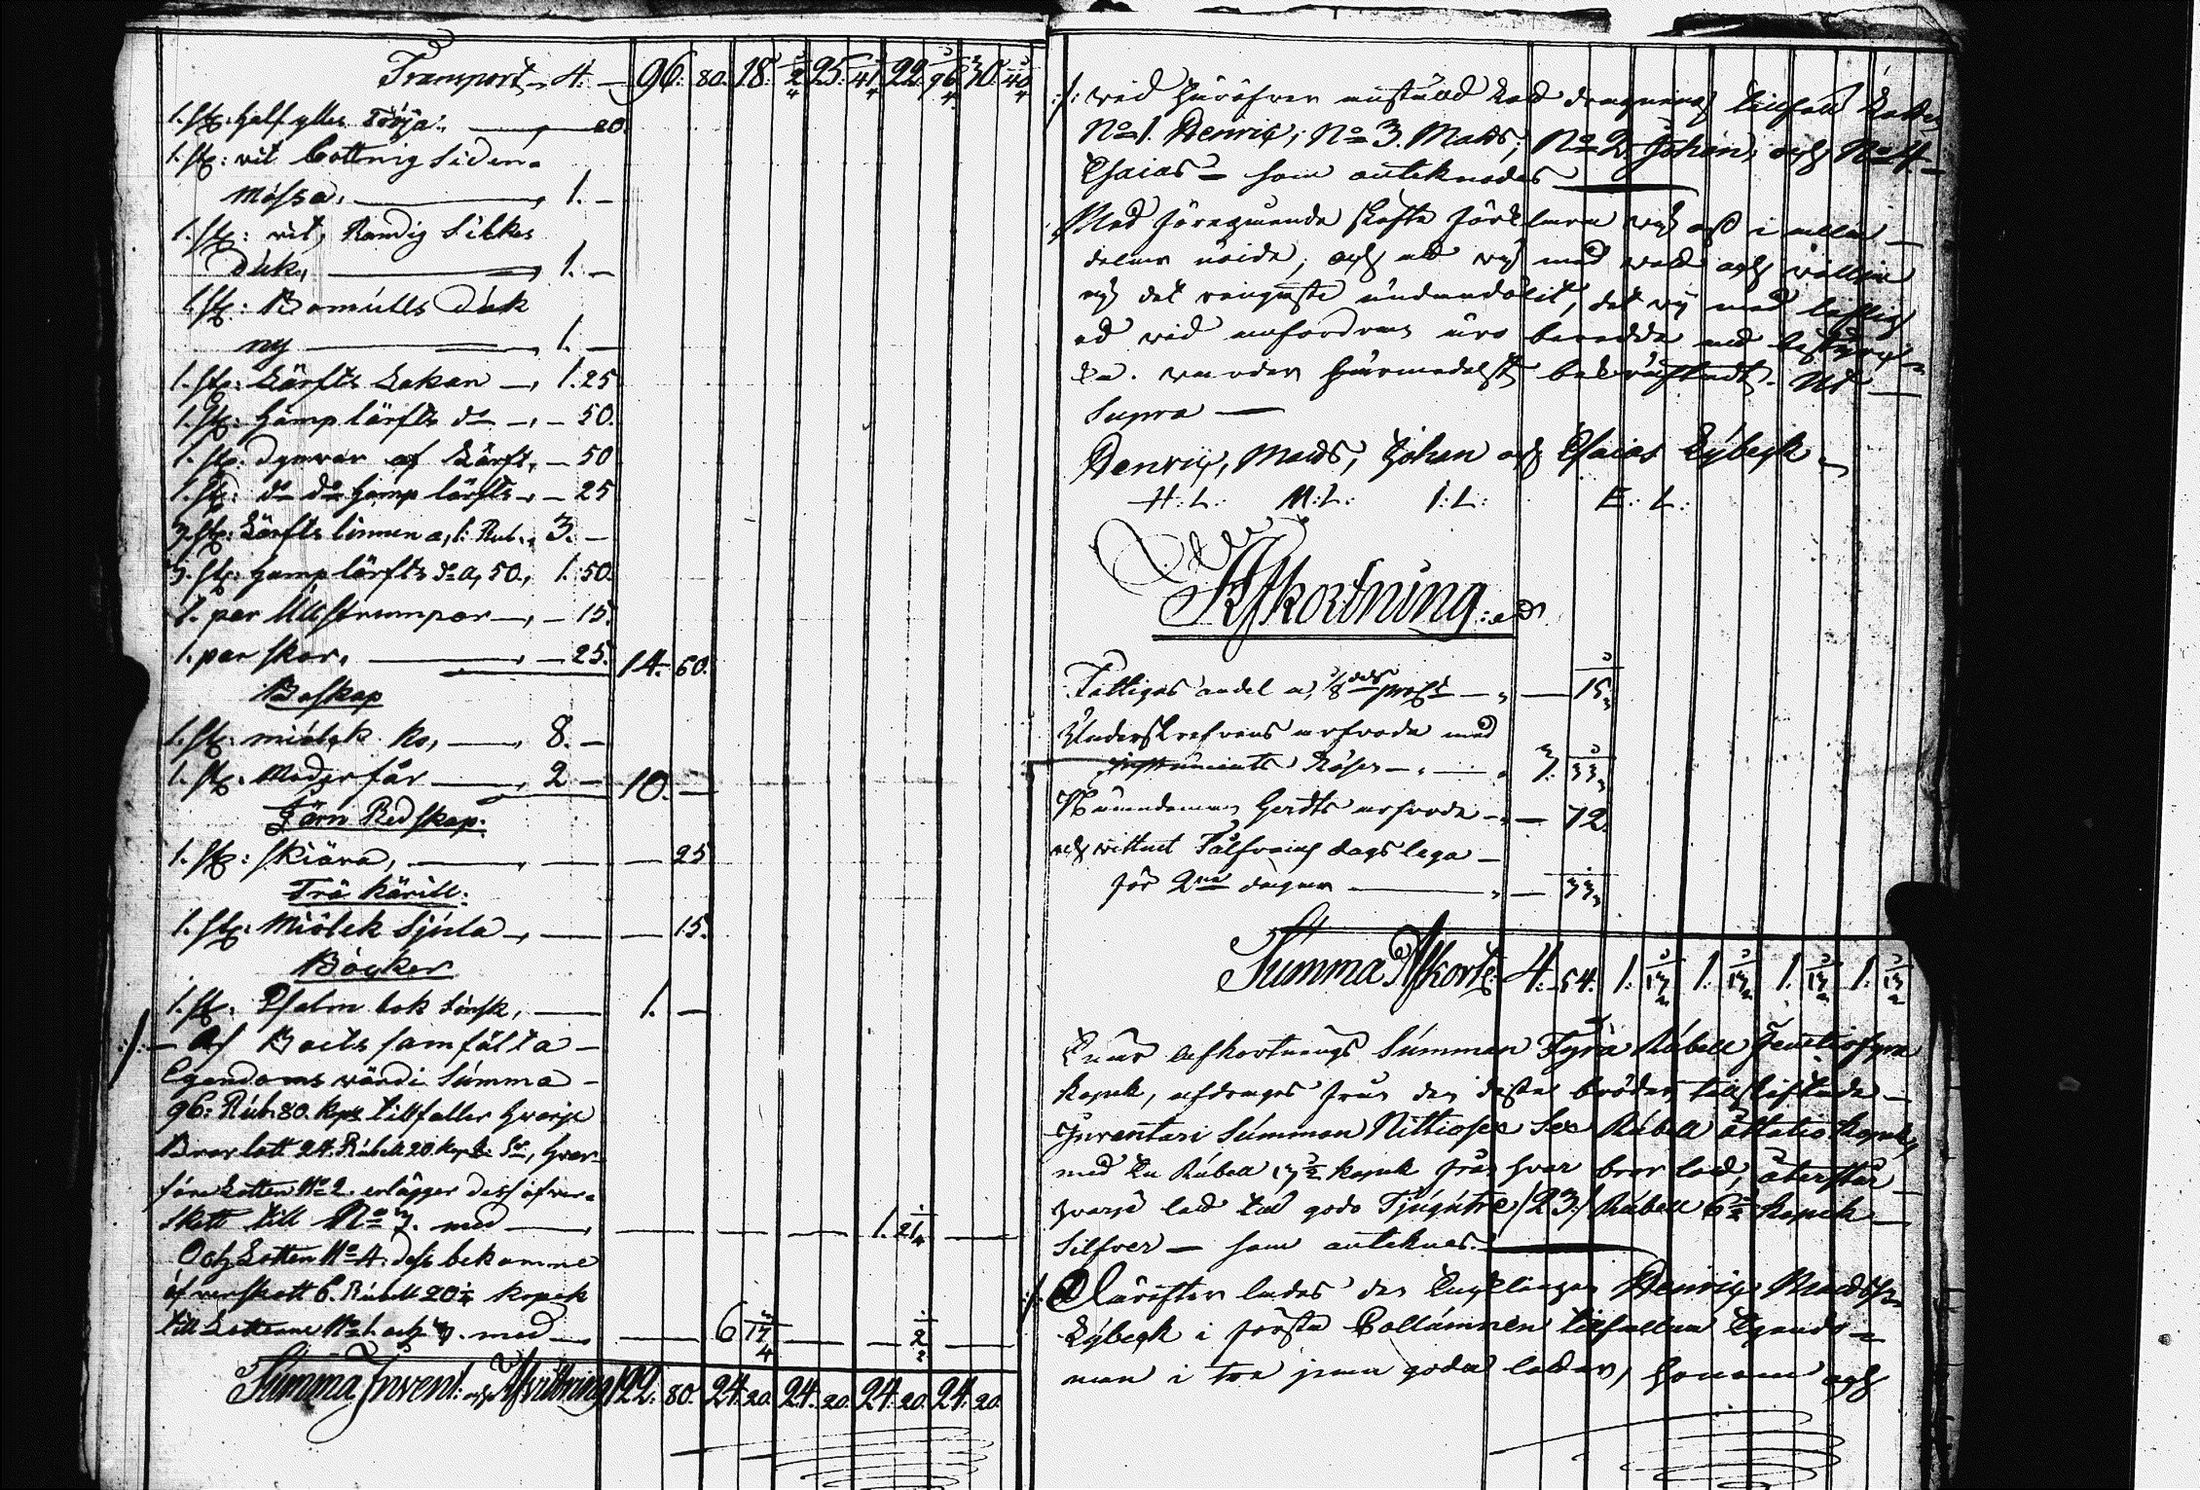 Transport 4. — 96. 80. 18. 2/4 25. 41/4 22. 96/4 30. 40/4
1. st: half ylles Tröja — 20.
1. st: vit Cottnig Siden
Mössa, — 1. —
1. st: vit, Randig Silkes
duk, — 1. —
1. st: Bomulls duk
ny — 1. —
1. st: Lärfts Lakan — 1. 25
1. st: Hamp lärfts do — 50.
1. st: dynvar af Lärft, — 50
1. st: do do Hamp lärfts — 25
3. st: Lärfts linnen a, 1. Rub., 3. —
3. st: Hamp lärfts do a, 50., 1. 50.
1. par Ullstrumpor — 15.
1. par skor, — 25. 14. 60.
Boskap
1. st: miölk ko, — 8. —
1. st: Moder får — 2 — 10. —
Järn Redskap.
1. st: skiära, — 25
Trä Kärill.
1. st: Miölk Sjula — 15.
Böcker
1. st: Psalm bok finsk, — 1. —
Af Boets samfälta
Egendoms värdi Summa
96: Rub. 80. Kop: tillfaller hvarje
Bror lott 24. Rubell 20. Kop: Sr, hvar-
före Lotten No 2. erlägger dess öfver-
skott till No 3. med — 1. 21/4
Och Lotten No 4. dess bekomne
öfverskott 6. Rubell 20 1/4 kopek
till Lotterne No 1. och 3. med — 6 17/4 — 2/2
Summa Invent: och Afvittring 122. 80. 24. 20. 24. 20. 24. 20. 24. 20.
wid häröfver anstäld Lott dragning tillföll Lotten
No 1. Henric; No 3. Mats; No 2. Johan; och No 4.
Esaias — som anteknades
Med föregående skifte förklara wij oss i alla
delar nöide, och att wij med wett och willia
ej det ringaste undandölit, det wij med liflig
ed wid anfordran äro beredde att bestyrc-
ka. warder härmedelst bekräftadt. Ut
Supra
Henric, Mats, Johan och Esaias Lybeck
H: L: M: L: I: L: E: L:
Afkortning:
Fattigas andel a, 1/8 dels proct — 15
Underskrefvens arfvode med
Röser — 3. 33
Nämndeman Gerdts arfvode — 72.
och wittnet dags lega
för 2ne dagar — 33
Summa Afkort: 4. 54. 1: 13 1/2 1: 13 1/2 1: 13 1/2 1: 13 1/2
Enär afkortnings Summan Fyra Rubell femtiofyra
kopek, afdrages från den desse bröder tillskiftade
Inventari Summan Nittiosex Rubell åttatio Kopek
med En Rubell 13 1/2 kopek från hvar bror lott, återstår
hvarje lott till godo Tjugutre /23/ Rubell 6 1/2 Kopek
Silfver — som anteknas.
Därefter lades den Enklingen Henric Matsson
Lybeck i första Collumnen tilfallna Egendo-
men i tre jemngoda lotter, honom och